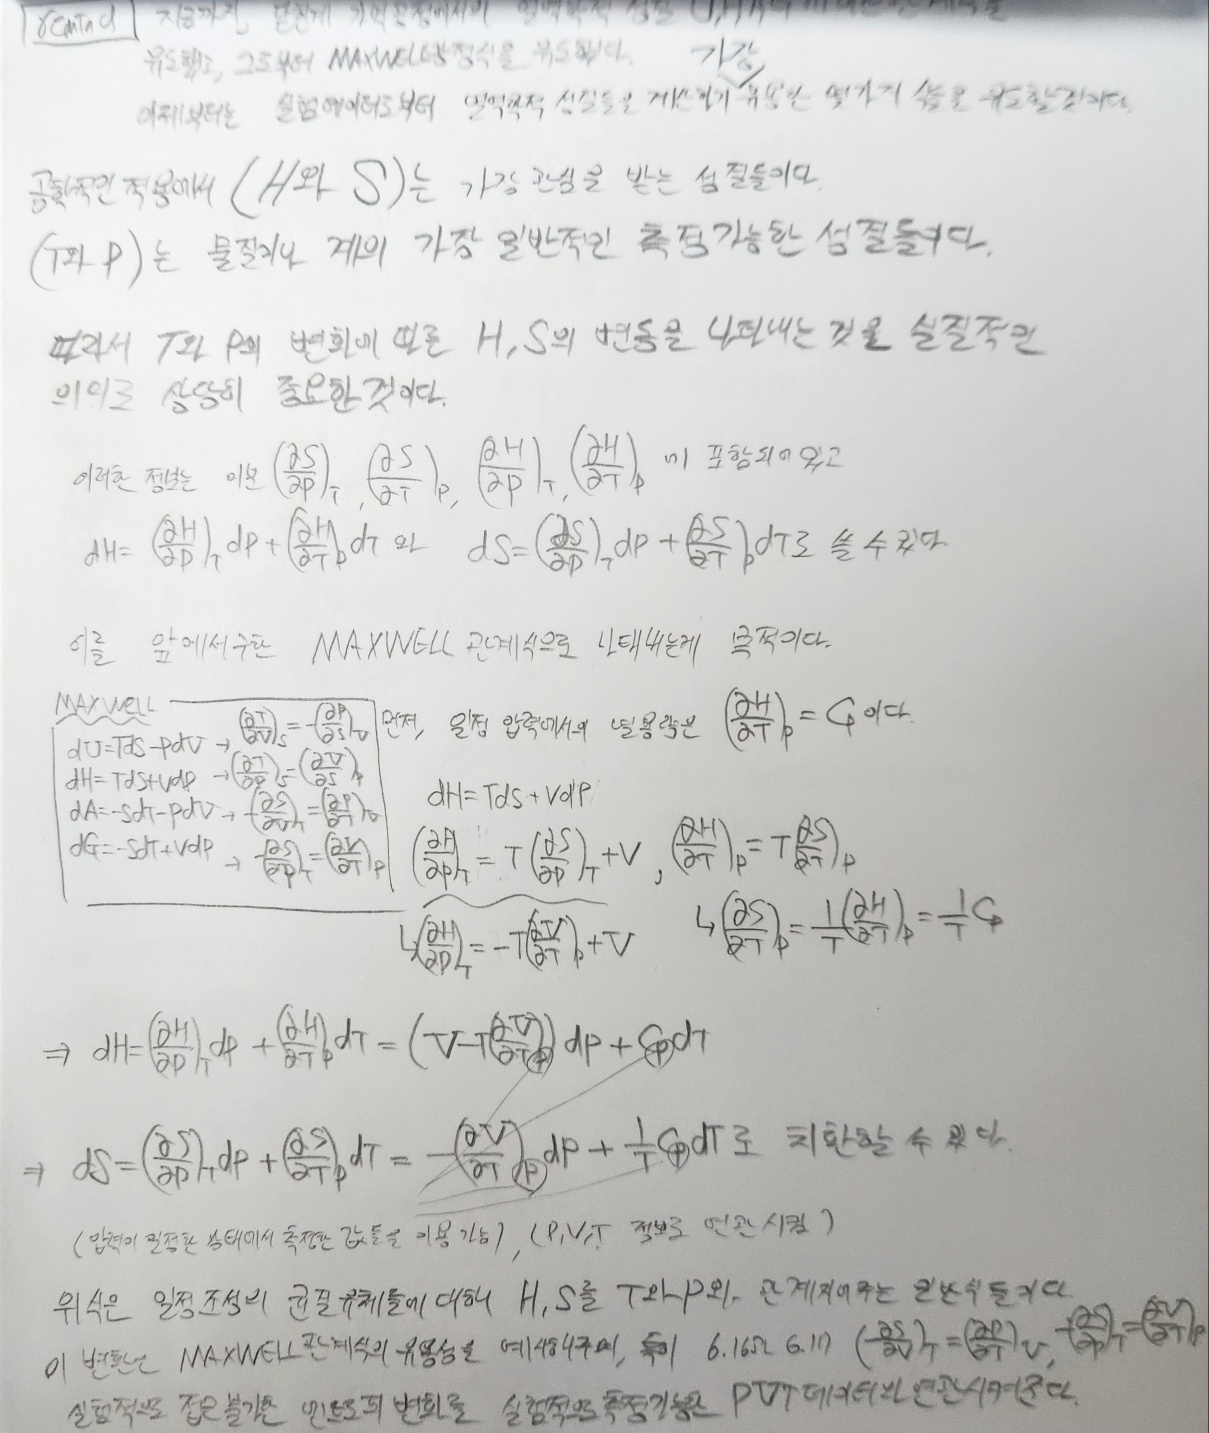 지금까지, 닫힌계 가역공정에서의 열역학적 성질 U,H,A,G
유도했고, 그로부터 MAXWELL방정식을 유도했다.
가장
이제부터는 실험데이터로부터 열역학적 성질들을 계산하기 유용한 몇가지 식들을 유도할것이다.
공학적인 적용에서 (H와 S)는 가장 관심을 받는 성질들이다.
(T와 P)는 물질이나 계의 가장 일반적인 측정가능한 성질들이다.
따라서 T와 P의 변화에 따른 H,S의 변동을 나타내는 것은 실질적인
의의로 상당히 중요한것이다.
이러한 정보는 이분 (∂S/∂P)_T, (∂S/∂T)_P, (∂H/∂P)_T, (∂H/∂T)_P 에 포함되어 있고
dH= (∂H/∂P)_T dP+(∂H/∂T)_P dT 와 dS=(∂S/∂P)_T dP+(∂S/∂T)_P dT로 쓸 수 있다
이를 앞에서 구한 MAXWELL 관계식으로 나태내는게 목적이다.
MAXWELL
dU=TdS-PdV → (∂T/∂V)_S=-(∂P/∂S)_V
dH=TdS+VdP → (∂T/∂P)_S=(∂V/∂S)_P
dA=-SdT-PdV → (∂S/∂V)_T=(∂P/∂T)_V
dG=-SdT+VdP → -(∂S/∂P)_T=(∂V/∂T)_P
먼저, 일정 압력에서의 열용량은 (∂H/∂T)_P=Cp이다.
dH=TdS+VdP
(∂H/∂P)_T=T(∂S/∂P)_T+V, (∂H/∂T)_P=T(∂S/∂T)_P
↳(∂H/∂P)_T=-T(∂V/∂T)_P+V
↳(∂S/∂T)_P=1/T(∂H/∂T)_P=1/T Cp
⇒ dH=(∂H/∂P)_T dP+(∂H/∂T)_P dT=(V-T(∂V/∂T)_P)dP+CpdT
⇒ dS=(∂S/∂P)_T dP+(∂S/∂T)_P dT=-(∂V/∂T)_P dP+1/T CpdT로 치환할 수 있다.
(압력이 일정한 상태에서 측정한 값들을 이용가능), (P,V,T 정보로 연관시킴)
위식은 일정조성의 균질유체들에 대해 H,S를 T와P와 관계지어주는 일반식들이다.
이 변환은 MAXWELL관계식의 유용성을 예시해주며, 특히 6.16와 6.17 (∂S/∂V)_T=(∂P/∂T)_V, -(∂S/∂P)_T=(∂V/∂T)_P
실험적으로 접근불가한 엔트로피 변화를 실험적으로 측정가능한 PVT데이터와 연관시켜준다.